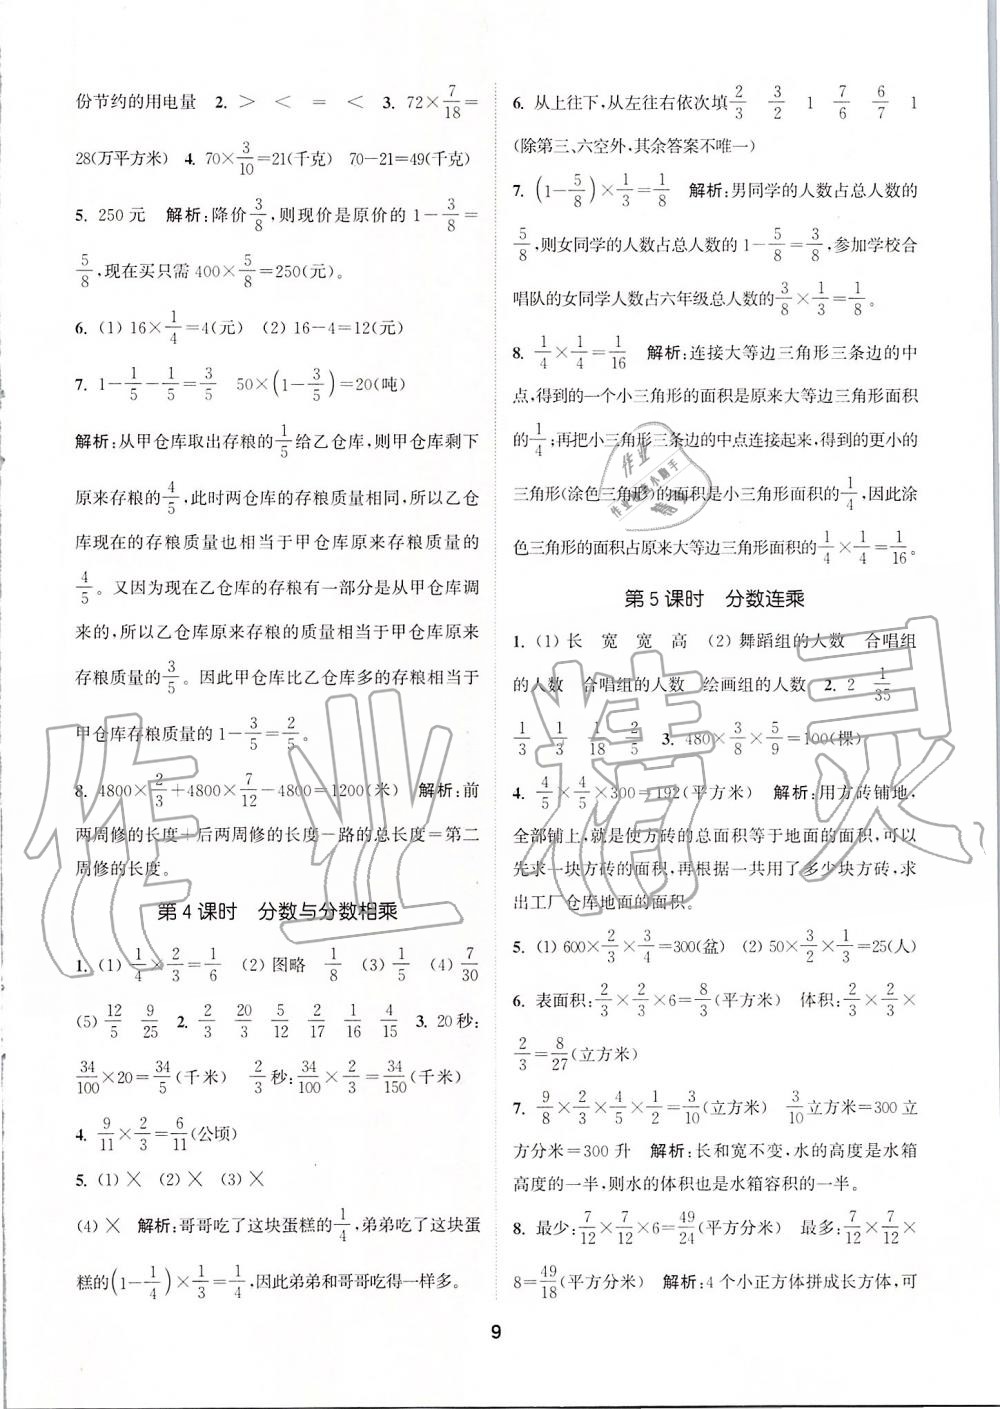 份节约的用电量　2. ＞　＜　＝　＜　3. 72×7/18=
28(万平方米)　4. 70×3/10=21(千克)　70-21=49(千克)
5. 250 元　解析:降价3/8,则现价是原价的 1-3/8=
5/8,现在买只需 400×5/8=250(元)。
6. (1) 16×1/4=4(元)　(2) 16-4=12(元)
7. 1-1/5-1/5=3/5　50×(1-3/5)=20(吨)
解析:从甲仓库取出存粮的1/5给乙仓库,则甲仓库剩下
原来存粮的4/5,此时两仓库的存粮质量相同,所以乙仓
库现在的存粮质量也相当于甲仓库原来存粮质量的
4/5。又因为现在乙仓库的存粮有一部分是从甲仓库来
的,所以乙仓库原来的存粮质量相当于甲仓库原来
存粮质量的3/5。因此甲仓库比乙仓库多的存粮相当于
甲仓库存粮质量的 1-3/5=2/5。
8. 4800×2/3+4800×7/12-4800=1200(米)　解析:前
两周修的长度+后两周修的长度-路的总长度=第二
周修的长度。
第 4 课时　分数与分数相乘
1. (1) 1/4×2/3=1/6　(2) 图略　1/8　(3) 1/5　(4) 7/30
(5) 12/5　9/25　2. 2/3　20/3　5/12　2/17　1/16　4/15　3. 20 秒:
34/100×20=34/5(千米)　2/3秒:34/100×2/3=34/150(千米)
4. 9/11×2/3=6/11(公顷)
5. (1) ×　(2) ×　(3) ×
(4) ×　解析:哥哥吃了这块蛋糕的1/4,弟弟吃了这块蛋
糕的(1-1/4)×1/3=1/4,因此弟弟和哥哥吃得一样多。
6. 从上往下,从左往右依次填2/3　3/2　1　7/6　6/7　1
(除第三、六空外,其余答案不唯一)
7. (1-5/8)×1/3=1/8　解析:男同学的人数占总人数的
5/8,则女同学的人数占总人数的 1-5/8=3/8,参加学校合
唱队的女同学人数占六年级总人数的3/8×1/3=1/8。
8. 1/4×1/4=1/16　解析:连接大等边三角形三条边的中
点,得到的一个小三角形的面积是原来大等边三角形
的1/4;再把小三角形三条边的中点连接起来,得到的更小的
三角形(涂色三角形)的面积是小三角形面积的1/4,因此涂
色三角形的面积占原来大等边三角形面积的1/4×1/4=1/16。
第 5 课时　分数连乘
1. (1) 长　宽　宽　高　(2) 舞蹈组的人数　合唱组
的人数　合唱组的人数　绘画组的人数　2. 2　1/35
1/3　1/3　1/18　2/5　3. 480×3/8×5/9=100(棵)
4. 4/5×4/5×300=192(平方米)　解析:用方砖铺地,
全部铺上,就是使方砖的总面积等于地面的面积,可以
先求一块方砖的面积,根据一共用了多少块方砖,求
出工厂仓库地面的面积。
5. (1) 600×2/3×3/4=300(盆)　(2) 50×3/2×1/3=25(人)
6. 表面积:2/3×2/3×6=8/3(平方米)　体积:2/3×2/3×
2/3=8/27(立方米)
7. 9/8×2/3×4/5×1/2=3/10(立方米)　3/10立方米=300 立
方分米=300 升　解析:长和宽不变,水的高度是水箱
高度的一半,则水的体积也是水箱容积的一半。
8. 最少:7/12×7/12×6=49/24(平方分米)　最多:7/12×7/12×
8=49/18(平方分米)　解析:4 个小正方体拼成长方体,可
9
作业精灵
作业